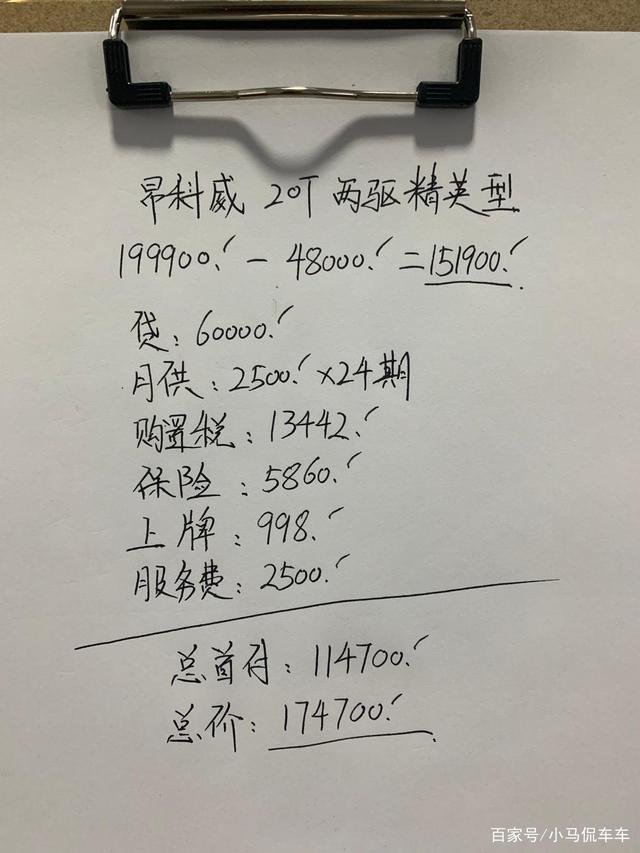 昂科威 20T 两驱精英型
199900.- 48000.=151900.
贷:60000.
月供:2500.×24期
购置税:13442.
保险:5860.
上牌:998.
服务费:2500.
总首付:114700.
总价:174700.
百家号/小马侃车车